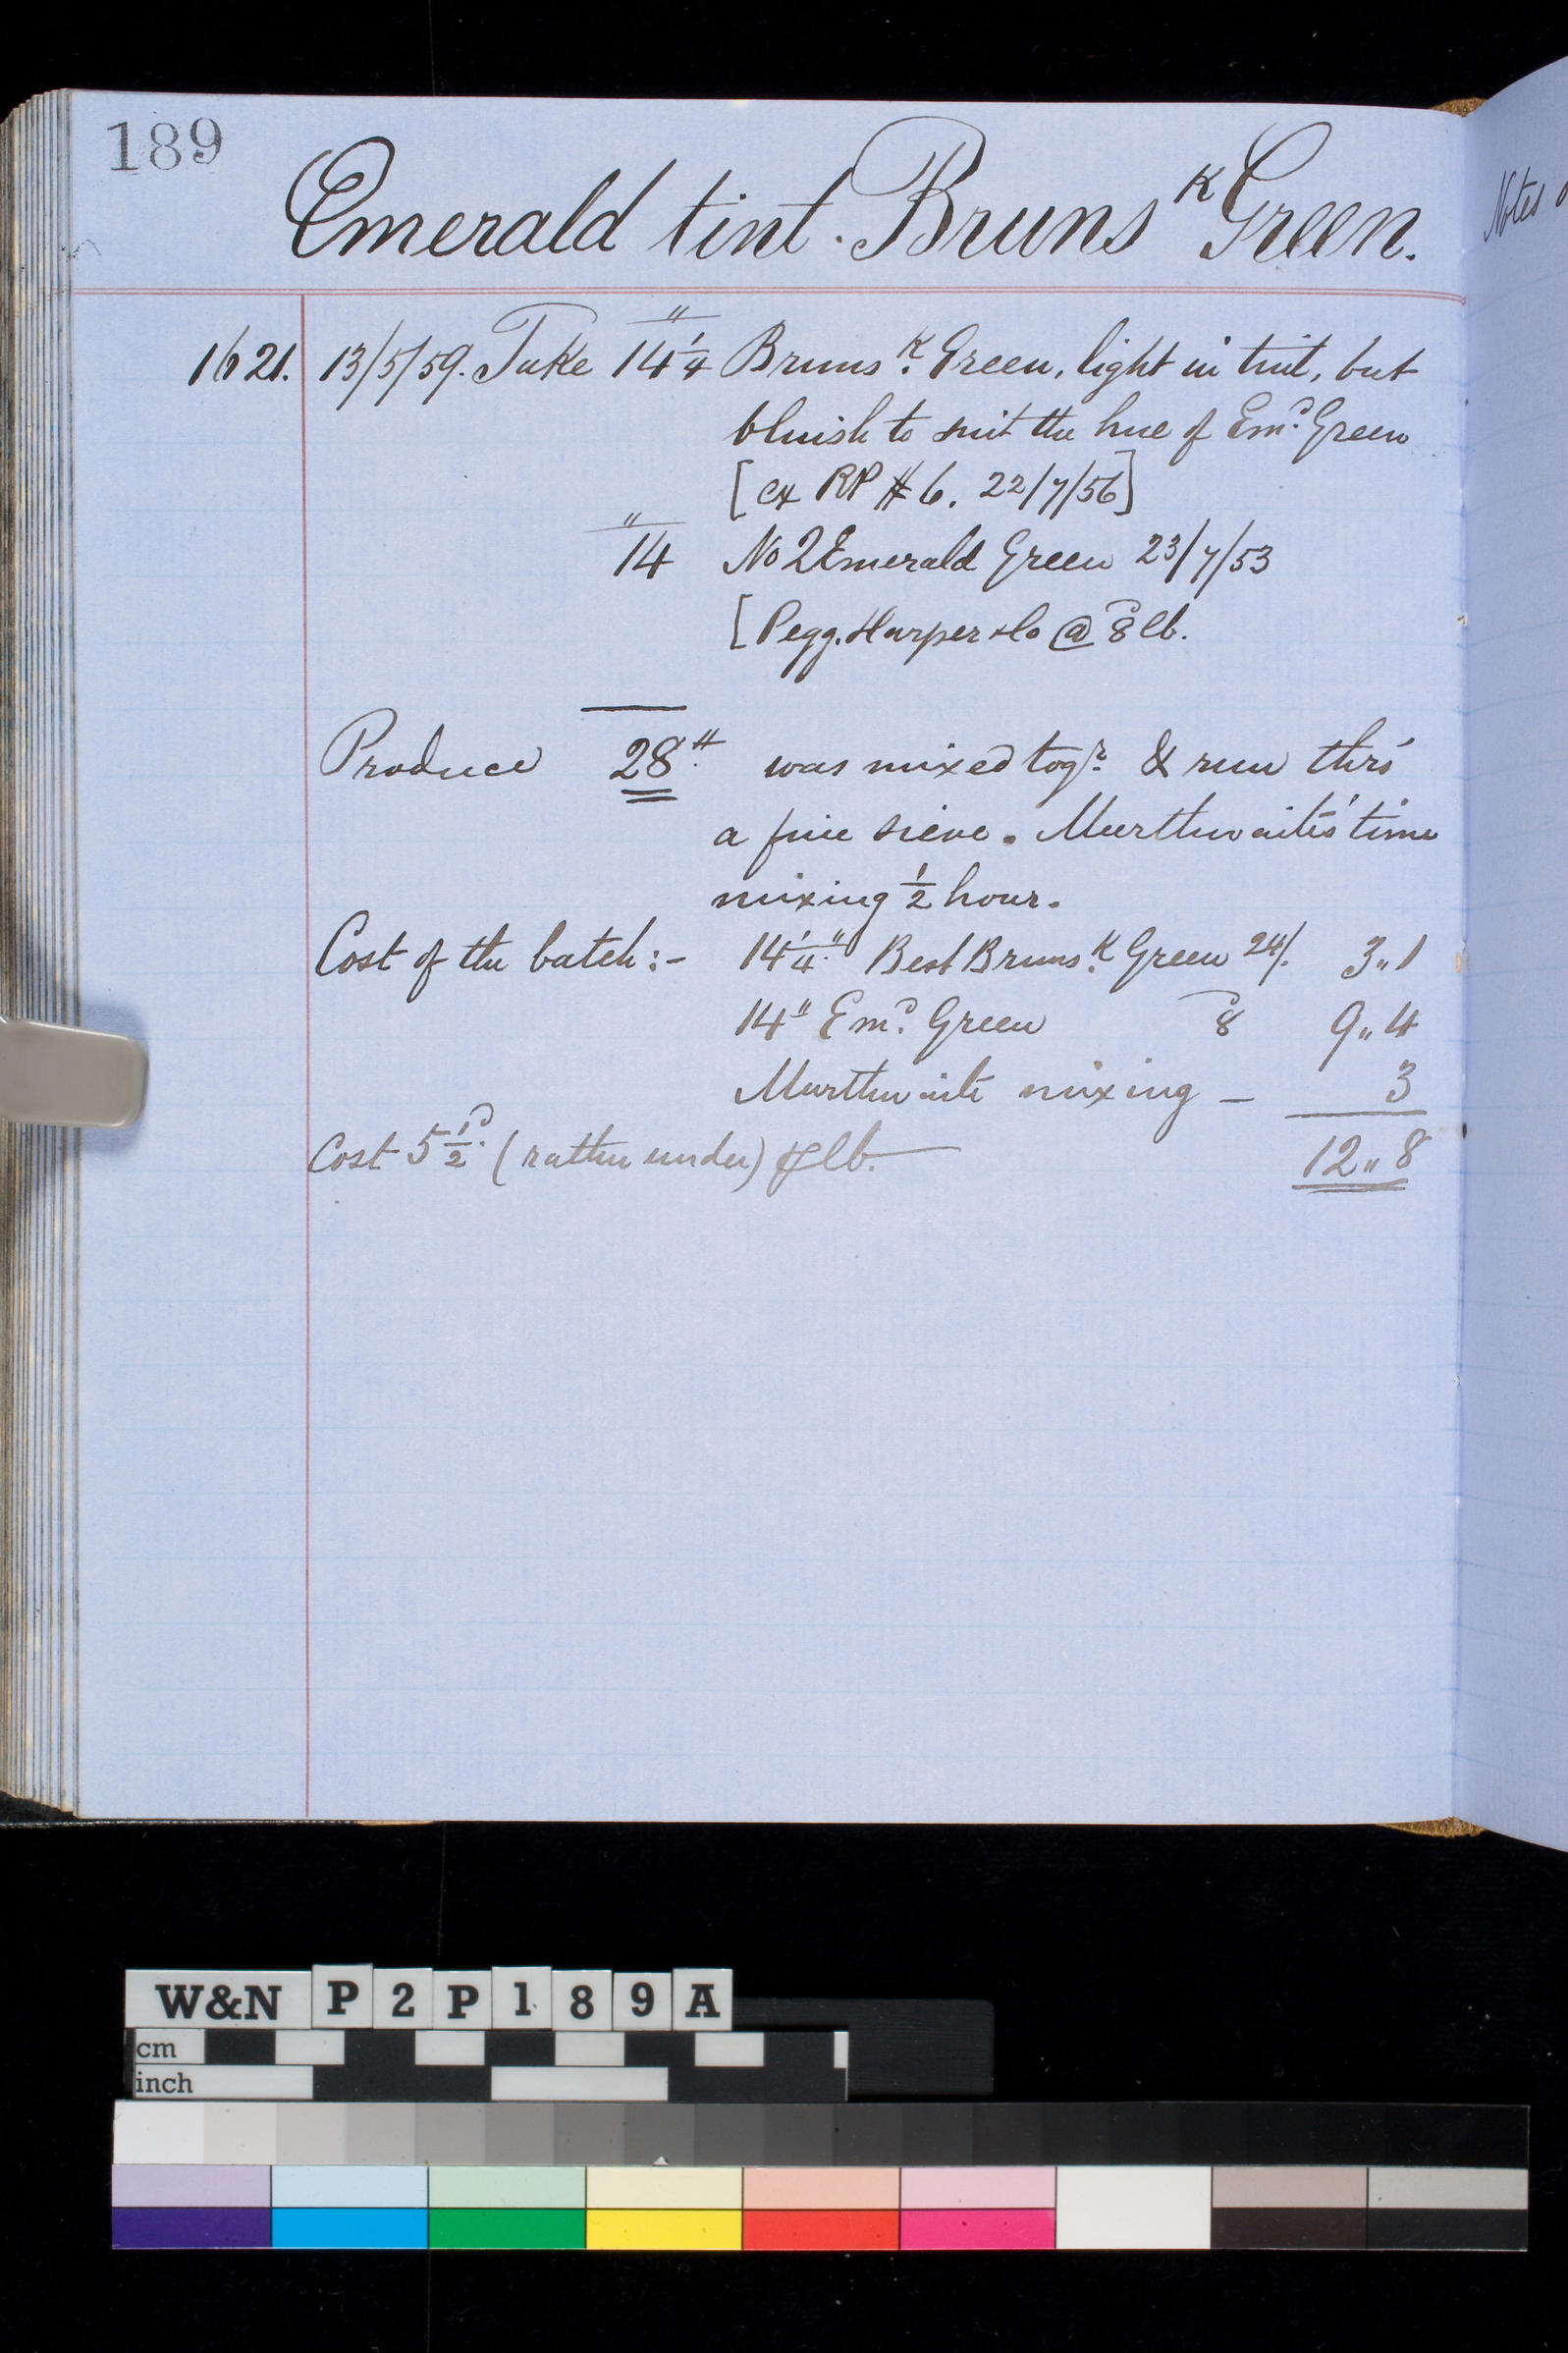 189
Emerald tint. Brunsᴷ Green.
Notes
1621. 13/5/59. Take 14¼ " Brunsᴷ. Green, light in tint, but
bluish to suit the hue of Emᵈ. Green
[ex RP # 6. 22/7/56]
14 " No 2 Emerald Green 23/7/53
[Pegg. Harper & Co @ 8ᵈ lb.
Produce 28 # was mixed togʳ. & run thro'
a fine sieve. Murthwaite's time
mixing ½ hour.
Cost of the batch:- 14¼ " Best Brunsᴷ. Green 24/. 3"1
14 " Emᵈ. Green 8ᵈ 9"4
Murthwaite mixing - 3
Cost 5½ᵈ. (rather under) ⅌ lb. 12"8
W&N P2P189A
cm
inch